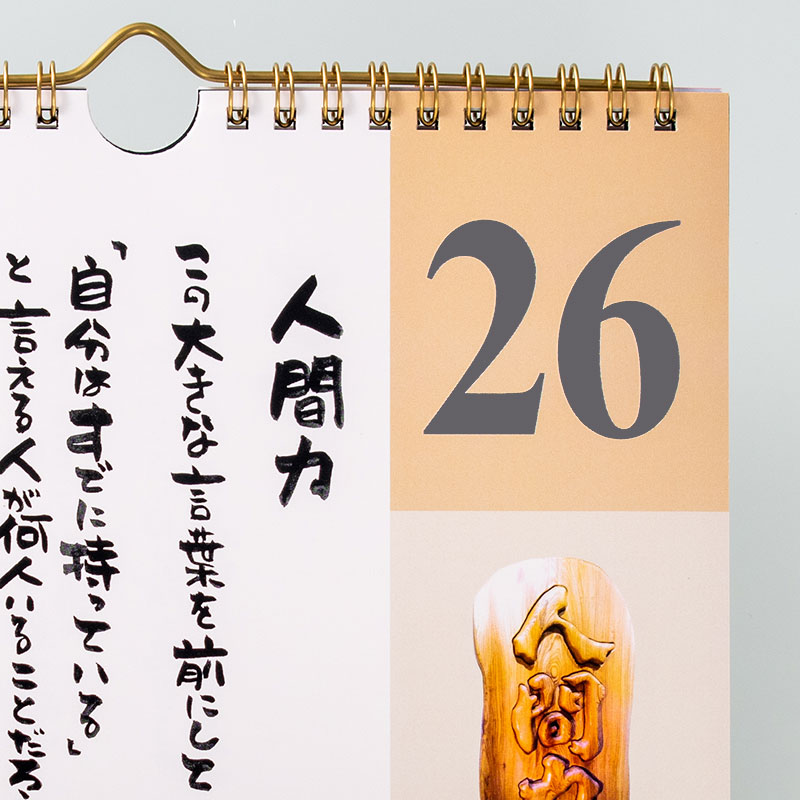 26
人間力
この大きな言葉を前にして
「自分はすでに持っている」
と言える人が何人いることだろ
人間力